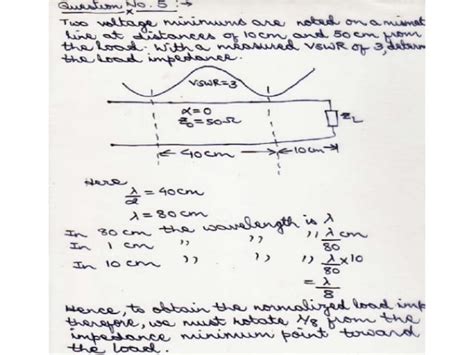 Question No. 5 :→
Two voltage minimums are noted on a
line at distances of 10cm and 50cm from
the load. With a measured VSWR of 3,
the load impedance.
VSWR=3
α=0
Z₀=50Ω
Z_L
←40cm→ ←10cm→
Here
λ/2 = 40cm
λ = 80cm
In 80cm the wavelength is λ
In 1 cm ,, ,, ,, λ/80 cm
In 10 cm ,, ,, ,, λ/80 ×10
= λ/8
Hence, to obtain the normalized load imp
therefore, we must rotate λ/8 from the
impedance minimum point toward
the load.